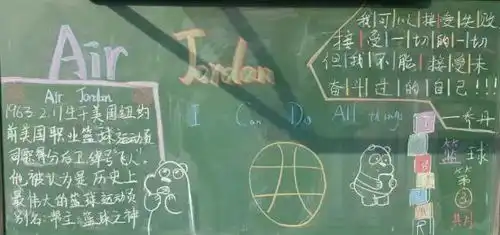 Air Jordan
我可以接受失败
接受一切的一切
但我不能接受未
奋斗过的自己!!!
Air Jordan
1963.2.17生于美国纽约
前美国职业篮球运动员
司职得分后卫,绰号"飞人".
他被认为是历史上
最伟大的篮球运动员
别名:帮主、篮球之神
I Can Do All things
一李丹
篮球
第
③
共